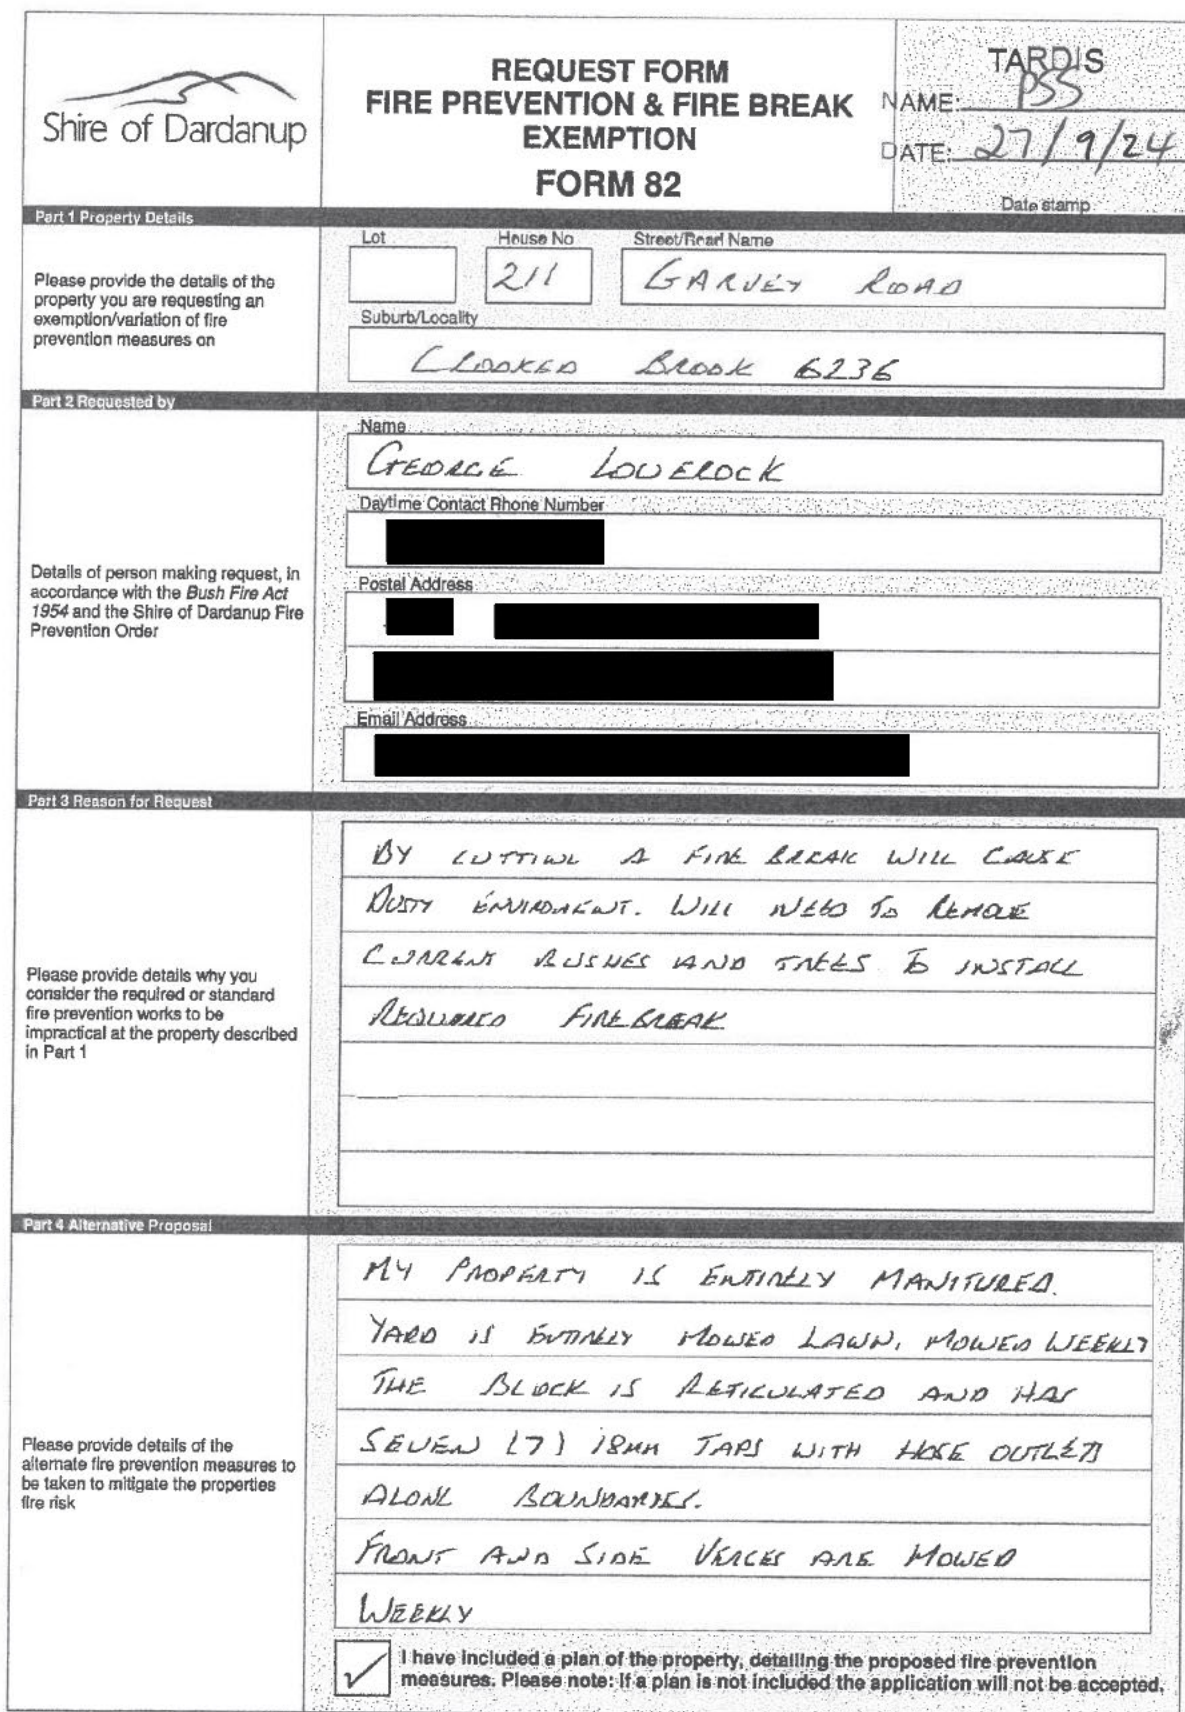 Shire of Dardanup
REQUEST FORM
FIRE PREVENTION & FIRE BREAK
EXEMPTION
FORM 82
TARDIS
NAME: PSS
DATE: 27/9/24
Date stamp
Part 1 Property Details
Please provide the details of the
property you are requesting an
exemption/variation of fire
prevention measures on
Lot
House No
Street/Road Name
211
GARVEY ROAD
Suburb/Locality
CROOKED BROOK 6236
Part 2 Requested by
Details of person making request, in
accordance with the Bush Fire Act
1954 and the Shire of Dardanup Fire
Prevention Order
Name
GEORGE LOVEROCK
Daytime Contact Phone Number
Postal Address
Email Address
Part 3 Reason for Request
Please provide details why you
consider the required or standard
fire prevention works to be
impractical at the property described
in Part 1
BY CUTTING A FIRE BREAK WILL CAUSE
DUSTY ENVIROMENT. WILL NEED TO REMOVE
CURRENT BUSHES AND TREES TO INSTALL
REQUIRED FIREBREAK
Part 4 Alternative Proposal
Please provide details of the
alternate fire prevention measures to
be taken to mitigate the properties
fire risk
MY PROPERTY IS ENTIRELY MANITURED.
YARD IS ENTIRELY MOWED LAWN, MOWED WEEKLY
THE BLOCK IS RETICULATED AND HAS
SEVEN (7) 18MM TAPS WITH HOSE OUTLETS
ALONG BOUNDARIES.
FRONT AND SIDE VERGES ARE MOWED
WEEKLY
I have included a plan of the property, detailing the proposed fire prevention
measures. Please note: If a plan is not included the application will not be accepted.